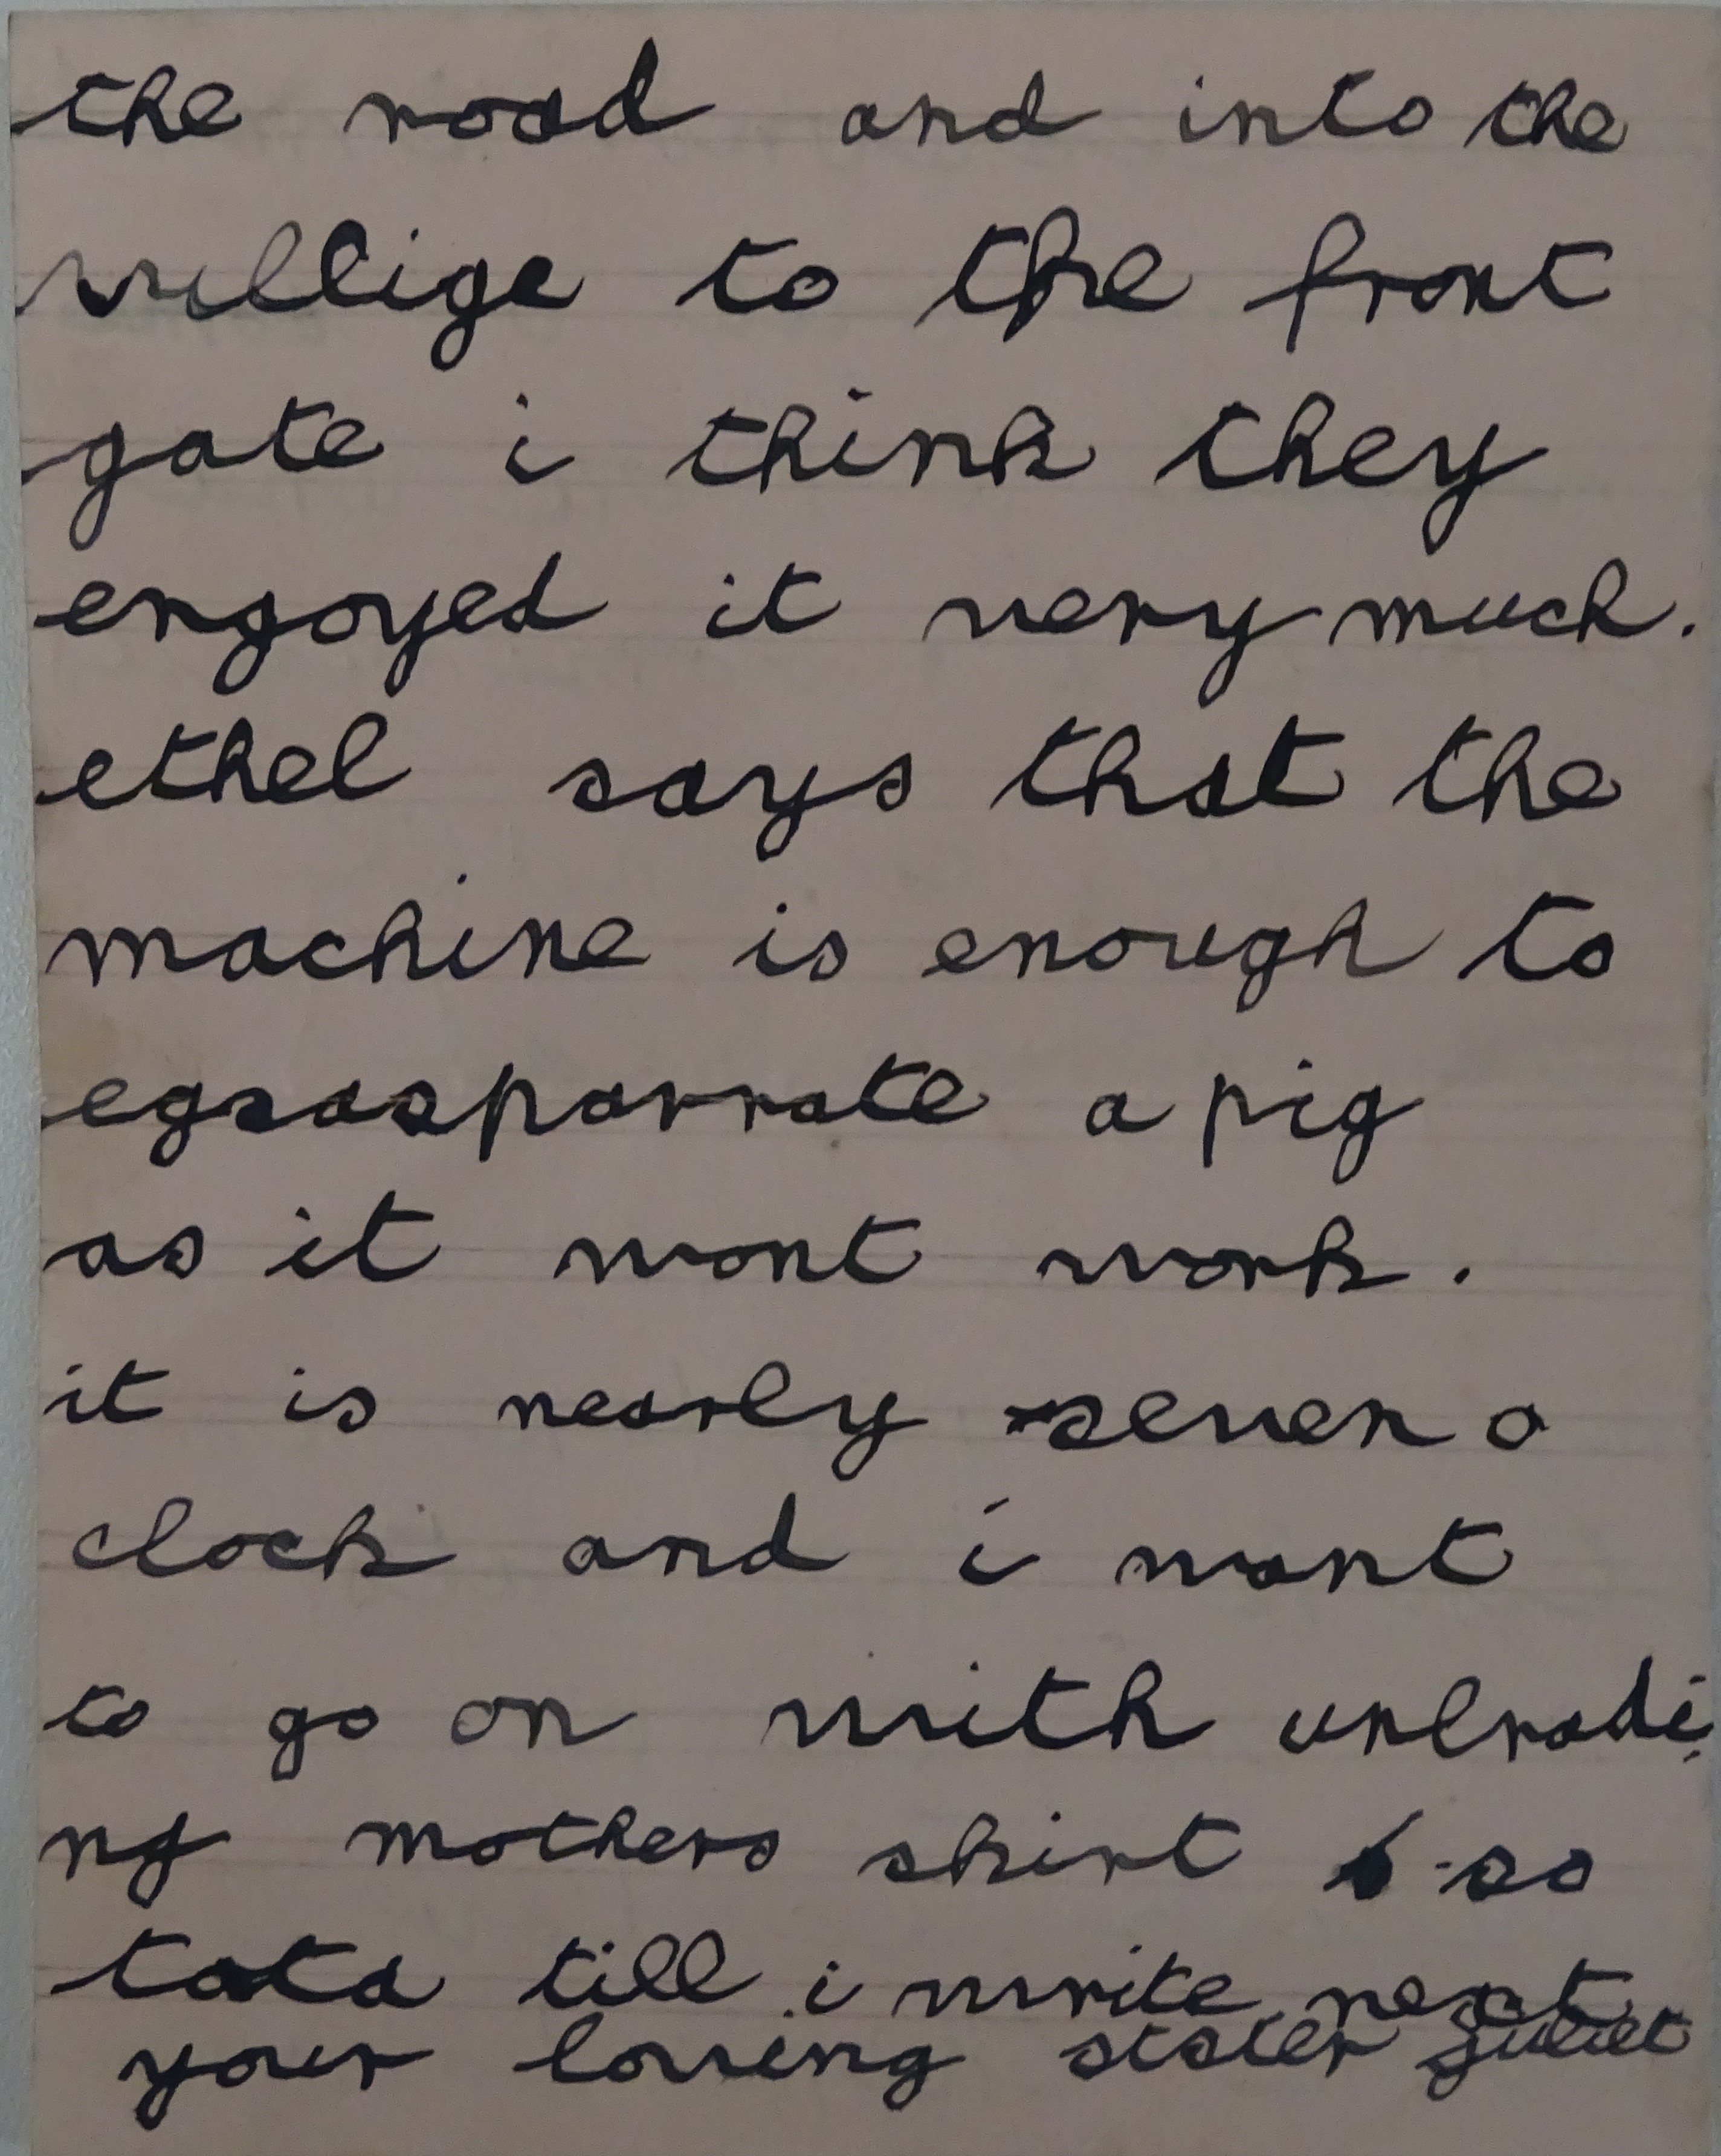 the road and into the
villige to the front
gate i think they
engoyed it very much.
ethel says that the
machine is enough to
egsasparrate a pig
as it wont work.
it is nearly seven o
clock and i want
to go on with unbradi
ng mothers skirt so
tata till i write next
your loving sister juliet